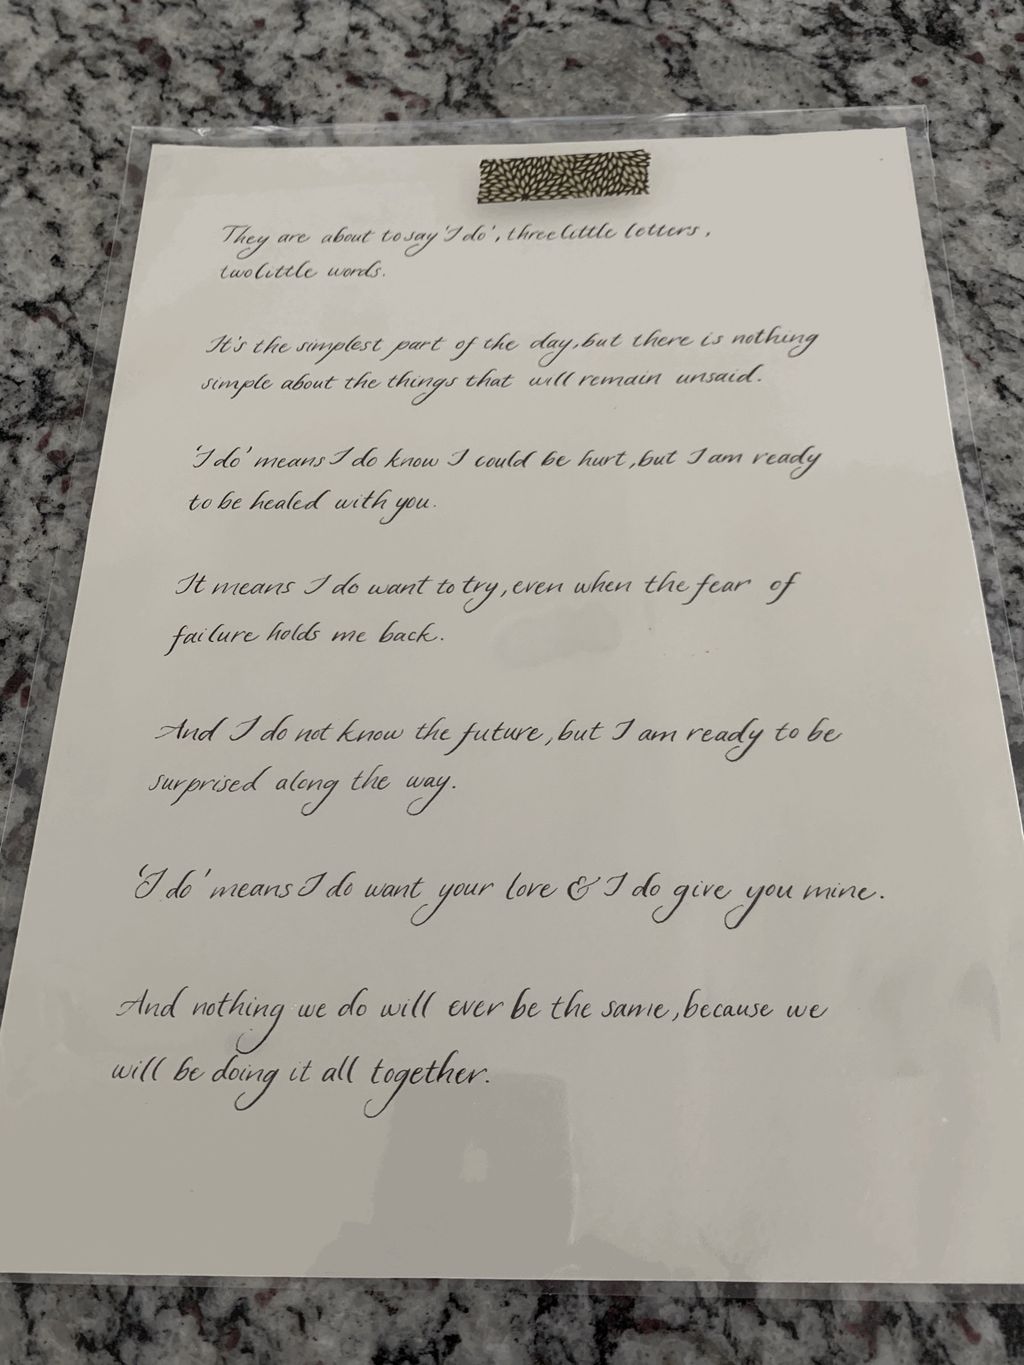 They are about to say 'I do', three little letters,
two little words.
It's the simplest part of the day, but there is nothing
simple about the things that will remain unsaid.
'I do' means I do know I could be hurt, but I am ready
to be healed with you.
It means I do want to try, even when the fear of
failure holds me back.
And I do not know the future, but I am ready to be
surprised along the way.
'I do' means I do want your love & I do give you mine.
And nothing we do will ever be the same, because we
will be doing it all together.